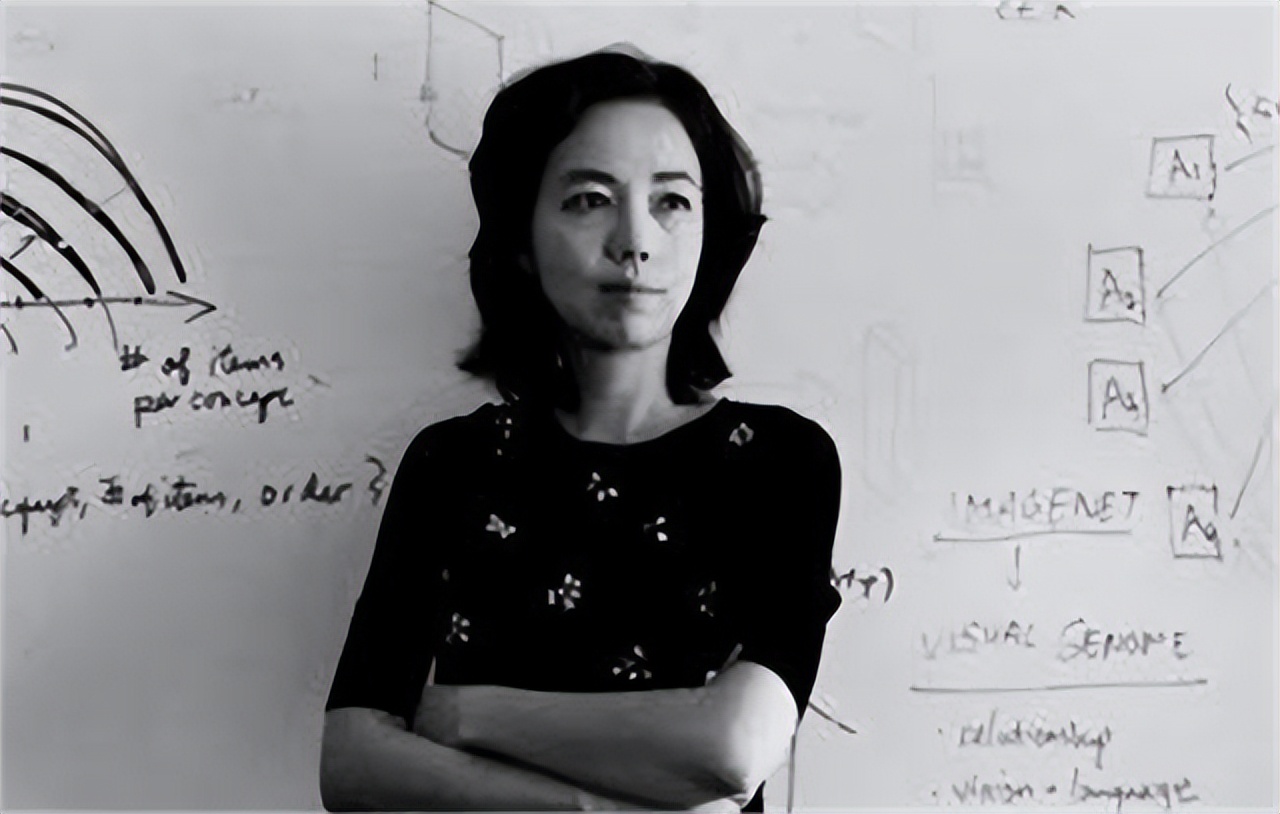 # of items
per concept
# of items, order }
A₁
A₂
A₃
IMAGENET
↓
VISUAL GENOME
· relationship
· vision + language